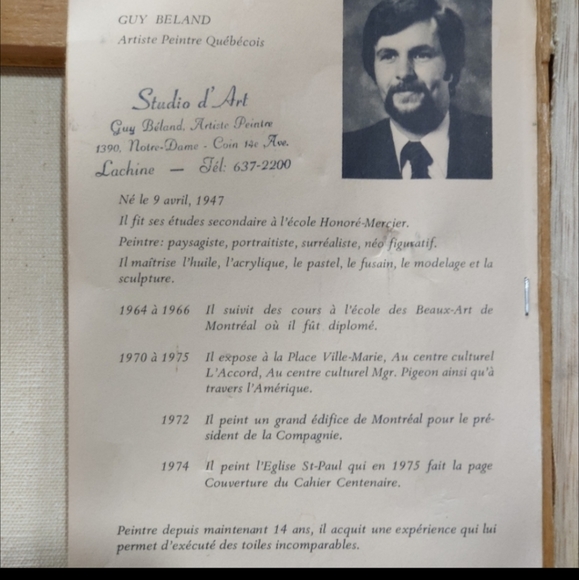 GUY BELAND
Artiste Peintre Québécois
Studio d'Art
Guy Béland, Artiste Peintre
1390, Notre-Dame - Coin 14e Ave.
Lachine — Tél: 637-2200
Né le 9 avril, 1947
Il fit ses études secondaire à l'école Honoré-Mercier.
Peintre: paysagiste, portraitiste, surréaliste, néo figuratif.
Il maîtrise l'huile, l'acrylique, le pastel, le fusain, le modelage et la
sculpture.
1964 à 1966 Il suivit des cours à l'école des Beaux-Art de
Montréal où il fût diplomé.
1970 à 1975 Il expose à la Place Ville-Marie, Au centre culturel
L'Accord, Au centre culturel Mgr. Pigeon ainsi qu'à
travers l'Amérique.
1972 Il peint un grand édifice de Montréal pour le pré-
sident de la Compagnie.
1974 Il peint l'Eglise St-Paul qui en 1975 fait la page
Couverture du Cahier Centenaire.
Peintre depuis maintenant 14 ans, il acquit une expérience qui lui
permet d'exécuté des toiles incomparables.